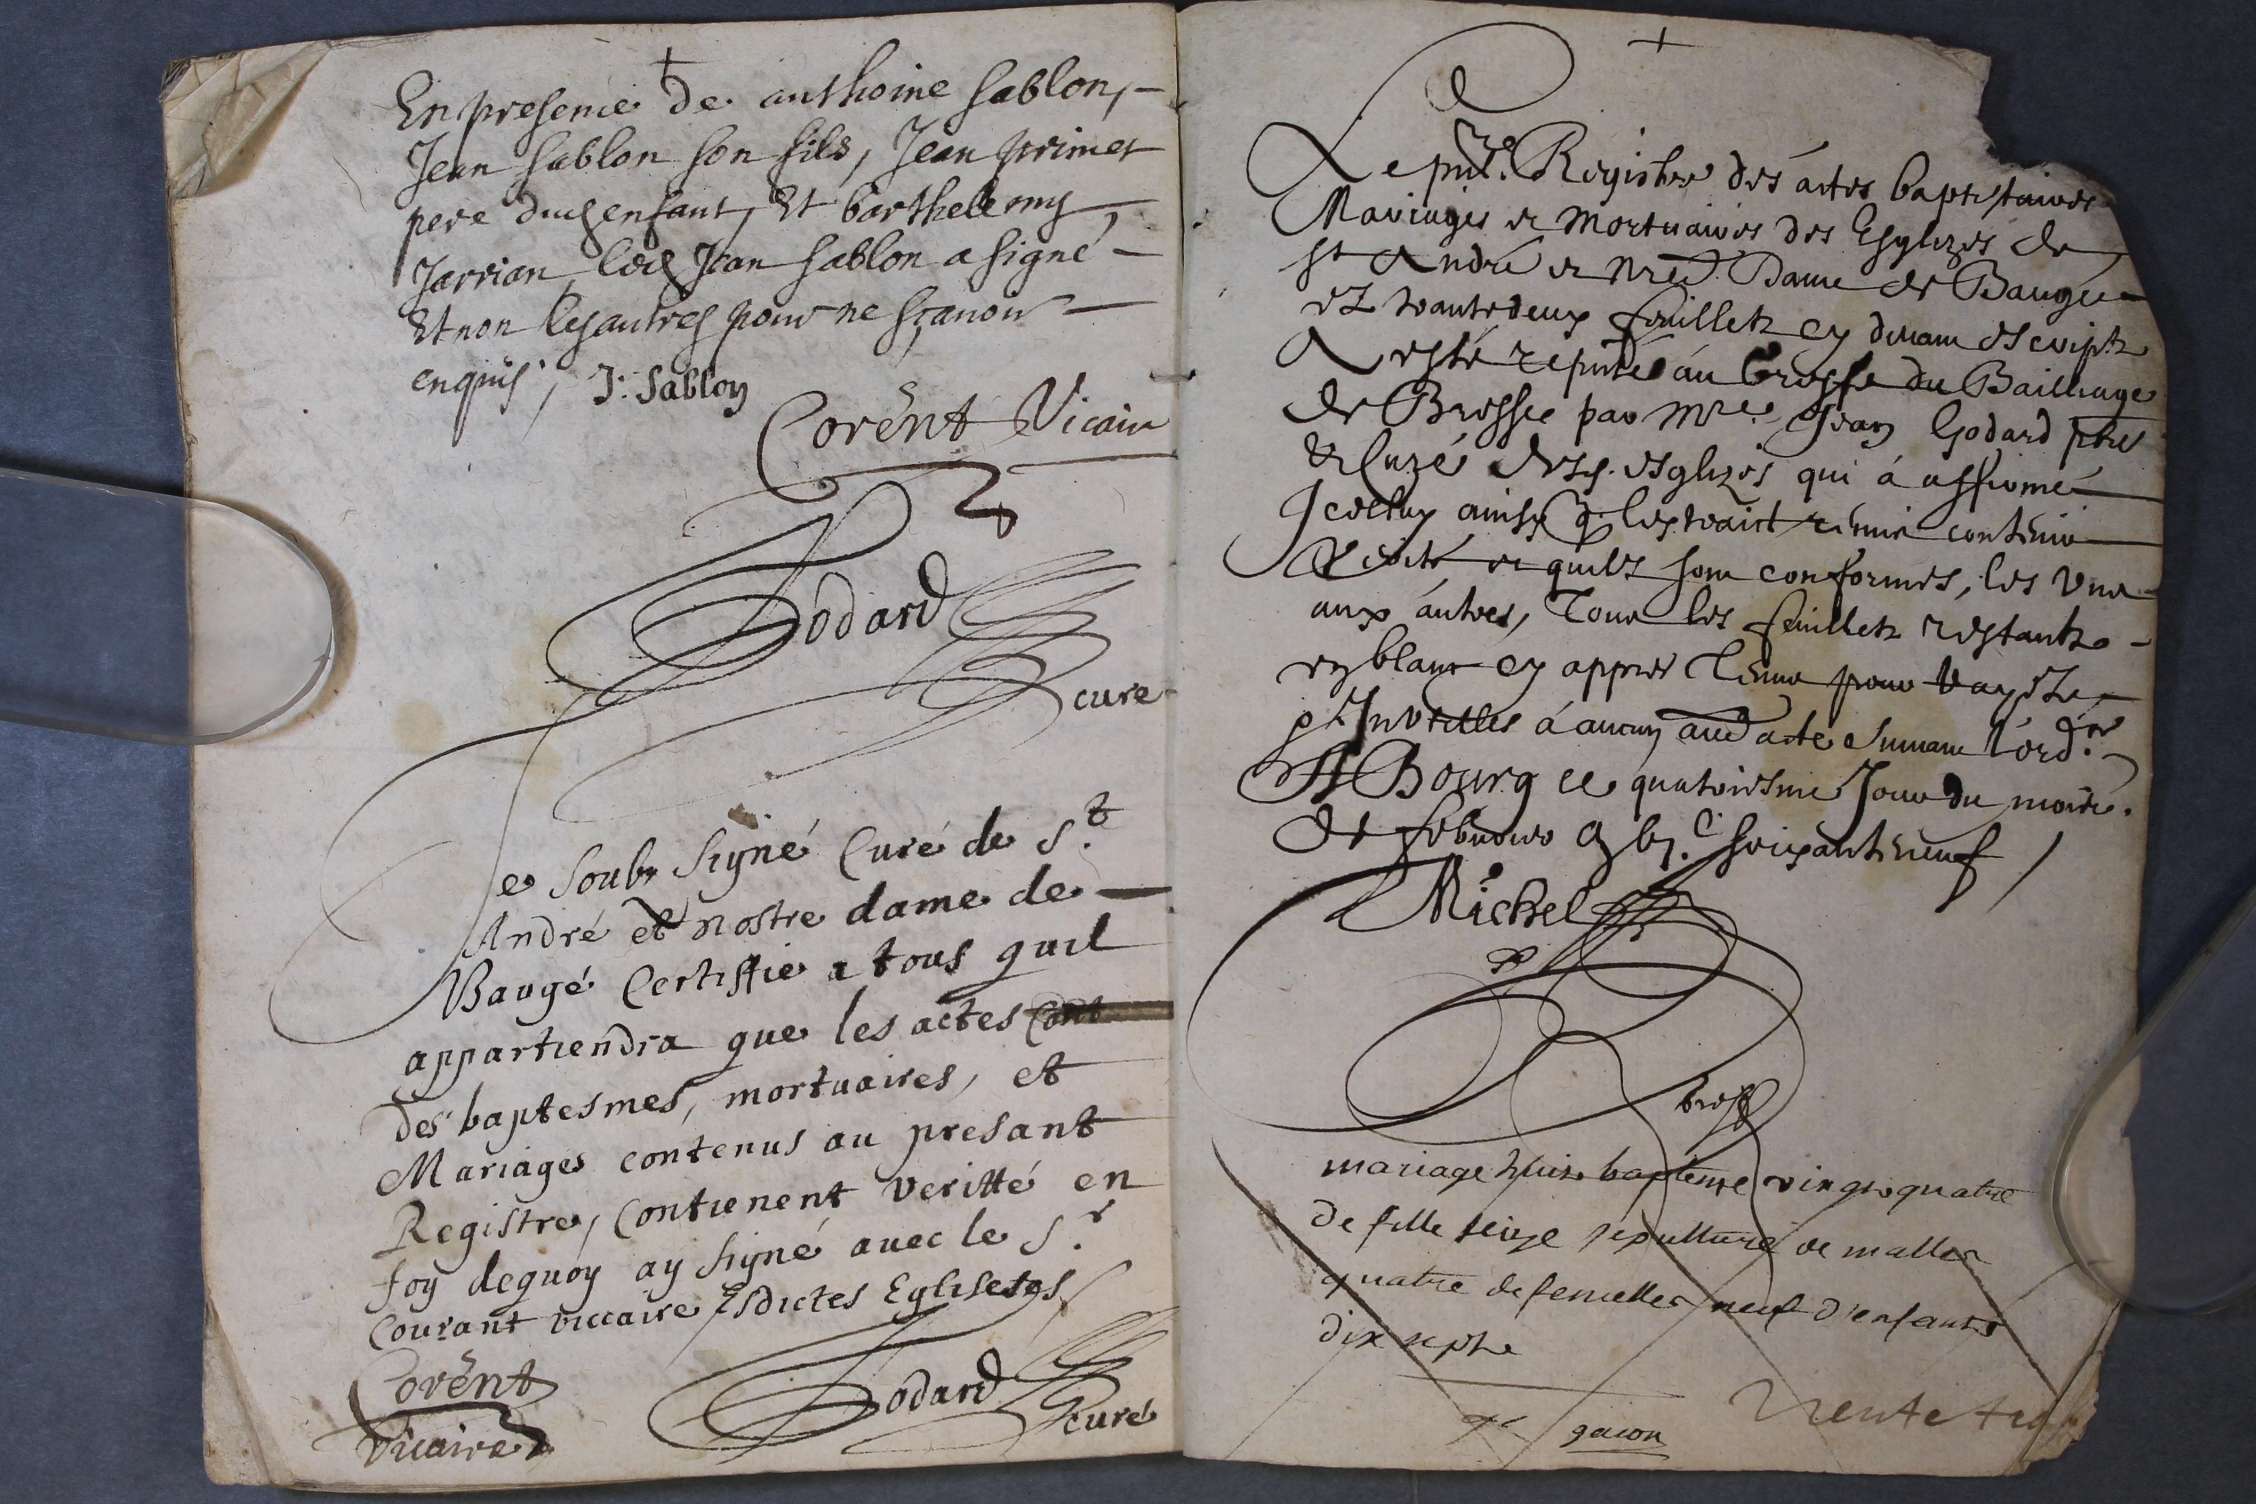 En presence de anthoine Sablon,
Jean Sablon son fils, Jean primet
pere dud enfant, Et barthelemy
Jarrian led Jean Sablon a signé
Et non les autres pour ne sçavoir
enquis, J. Sablon
Corent Vicaire
Godard
curé
Je soubs signé Curé de St
André et nostre dame de
Baugé Certiffie a tous quil
appartiendra que les actes
des baptesmes, mortuaires, et
Mariages contenus au presant
Registre, Contienent veritté en
foy dequoy ay signé avec le Sr
Courant viccaire Esdictes Eglises
Corent
Vicaire
Godard
curé
Le pnt Registre des actes baptistaires
Mariages et Mortuaires des Esglizes de
St André et Nre Dame de Baugé
et trante deux feuilletz cy devant escriptz
A esté au Greffe du Bailliage
de Bresse par Mre Jean Godard pbre
et Curé desd. esglizes qui à affirmé
Icelluy ainsy q lextraict remis contenir
Verité et quilz sont conformes, les uns
aux autres, tous les feuilletz restantz
en blanc cy appres tenus pour
Inutilles à aucun acte suivant l'ord.re
A Bourg ce quatoriesme Jour du mois
de febvrier soixante neuf
Michel
mariage huit baptême vingt quatre
de fille seize sepulture de malles
quatre de femelles neuf d'enfants
dix sept
gacon
Trente